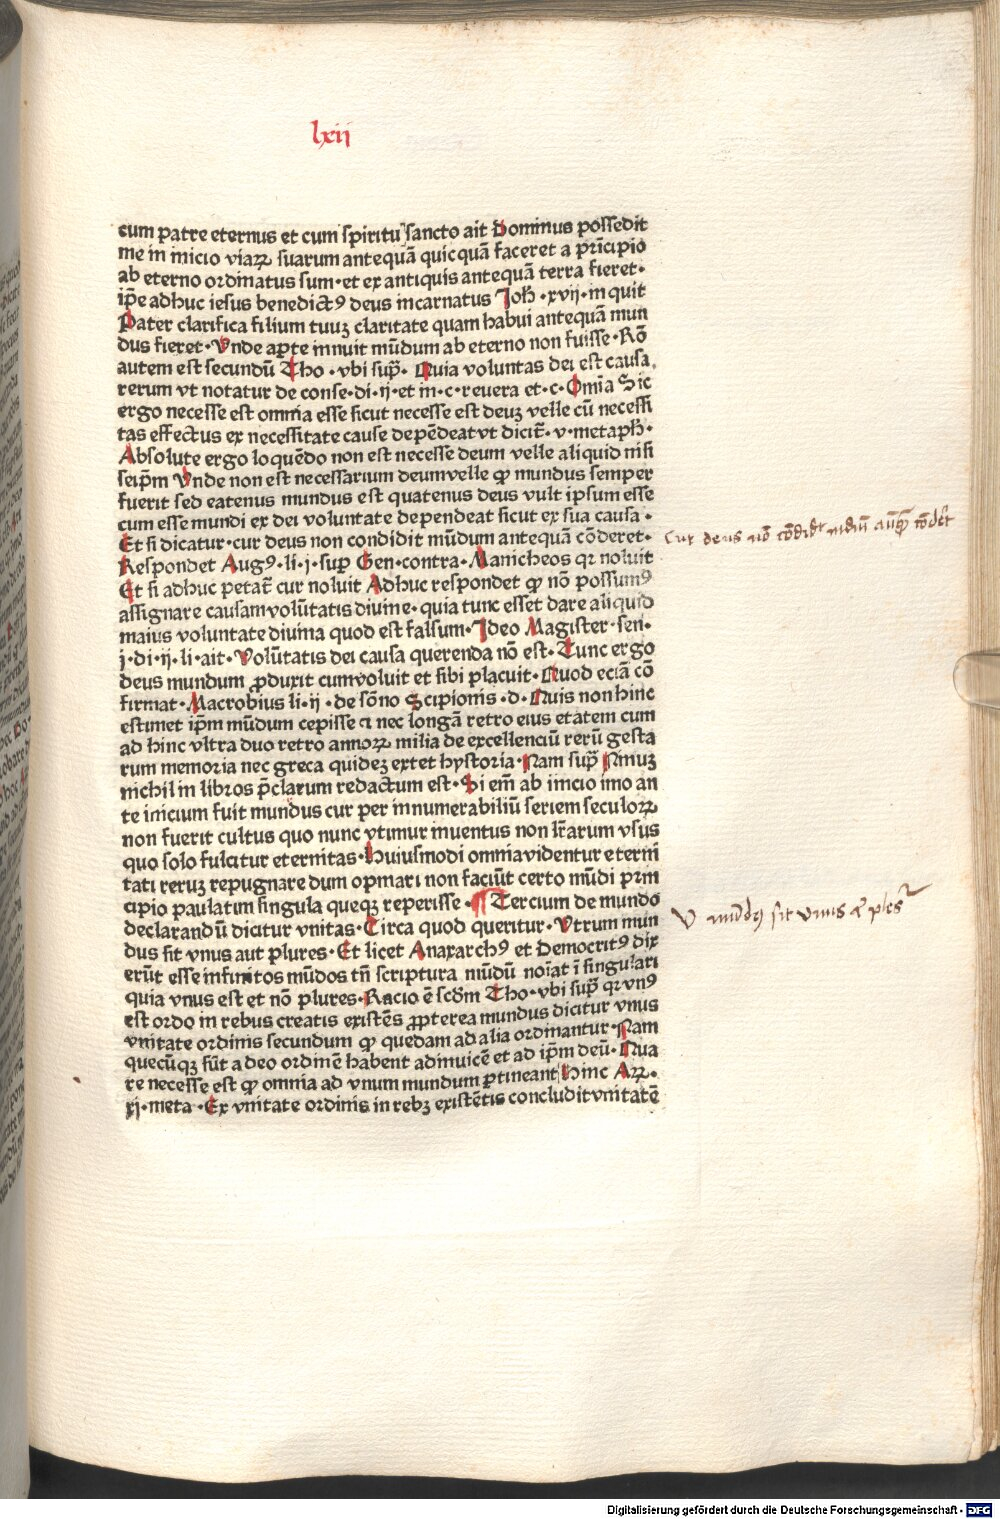 lxij
cum patre eternus et cum spiritu sancto ait Dominus possedit
me in inicio viaꝝ suarum antequā quicquā faceret a prīcipio
ab eterno ordinatus sum·et ex antiquis antequā terra fieret·
ip̄e adhuc iesus benedictꝰ deus incarnatus Joh̄·xvij·inquit
Pater clarifica filium tuuꝫ claritate quam habui antequā mun
dus fieret·Vnde aꝑte innuit mūdum ab eterno non fuisse·Rō
autem est secundū Tho·vbi supͣ·Quia voluntas dei est causa
rerum vt notatur de conse·di·ij·et in·c·reuera et·c·Omīa Sic
ergo necesse est omnia esse sicut necesse est deuꝫ velle cū necessi
tas effectus ex necessitate cause depēdeat vt dicit̄·v·metaph̄·
Absolute ergo loquēdo non est necesse deum velle aliquid nisi
seip̄m Vnde non est necessarium deum velle ꝙ mundus semper
fuerit sed eatenus mundus est quatenus deus vult ipsum esse
cum esse mundi ex dei voluntate dependeat sicut ex sua causa·
Et si dicatur·cur deus non condidit mūdum antequā cōderet·
Respondet Augꝰ·li·j·suꝑ Gen·contra·Manicheos qꝛ noluit
Et si adhuc petat̄ cur noluit Adhuc respondet ꝙ nō possumꝰ
assignare causam volūtatis diuine·quia tunc esset dare aliquid
maius voluntate diuina quod est falsum·Ideo Magister·sen·
j·di·ij·li·ait·Volūtatis dei causa querenda nō est·Tunc ergo
deus mundum ꝓduxit cum voluit et sibi placuit·Quod eciā cō
firmat·Macrobius li·ij·de sōno Scipionis·d·Quis non hinc
estimet ip̄m mūdum cepisse a nec longā retro eius etatem cum
ad hinc vltra duo retro annoꝝ milia de excellenciū rerū gesta
rum memoria nec greca quideꝫ extet hystoria·Nam supͣ Ninuꝫ
nichil in libros p̄clarum redactum est·Si em̄ ab inicio imo an
te inicium fuit mundus cur per innumerabiliū seriem seculoꝝ
non fuerit cultus quo nunc vtimur inuentus non lr̄arum vsus
quo solo fulcitur eternitas·Huiusmodi omnia videntur eterni
tati reruꝫ repugnare dum opinari non faciūt certo mūdi prin
cipio paulatim singula queqꝫ reperisse·¶Tercium de mundo
declarandū dicitur vnitas·Circa quod queritur·Vtrum mun
dus sit vnus aut plures·Et licet Anaxarchꝰ et Democritꝰ dix
erūt esse infinitos mūdos tn̄ scriptura mūdū noīat ī singulari
quia vnus est et nō plures·Racio ē scd̄m Tho·vbi supͣ qꝛ vnꝰ
est ordo in rebus creatis existēs ꝓpterea mundus dicitur vnus
vnitate ordinis secundum ꝙ quedam ad alia ordinantur·Nam
quecūqꝫ sūt a deo ordinē habent adinuicē et ad ip̄m deū·Qua
re necesse est ꝙ omnia ad vnum mundum ꝑtineant Hinc Aꝝ·
xj·meta·Ex vnitate ordinis in rebꝫ existētis concludit vnitatē
Cur deus nō cōdidit mūdū anteqͣ cōderet
V mūdꝰ sit vnus aut plures
Digitalisierung gefördert durch die Deutsche Forschungsgemeinschaft - DFG